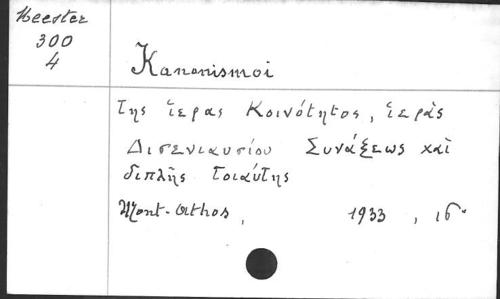 Meester
300
4
Kanonismoi
της ἱερας Κοινότητος, ἱερᾶς
Δισενιαυσίου Συνάξεως καὶ
διπλῆς τοιαύτης
Mont-Athos, 1933, 16°